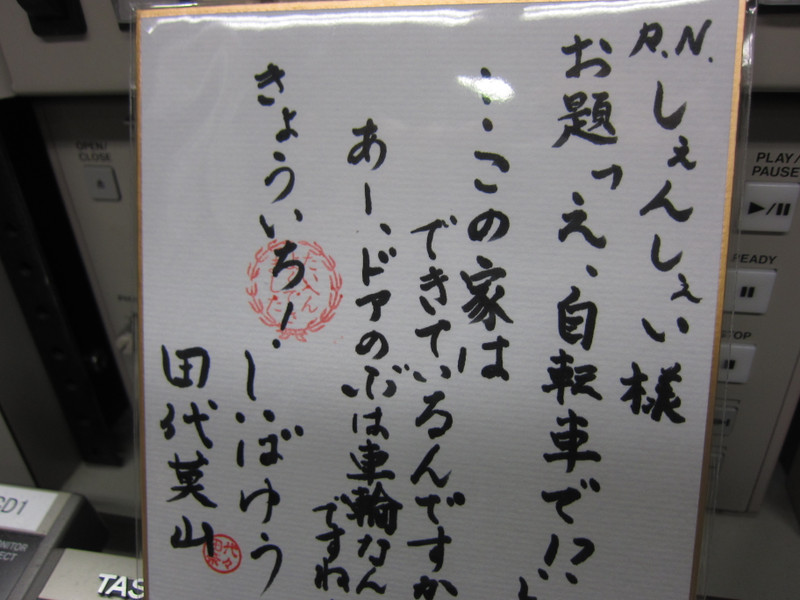 R.N.しぇんしぇい様
お題「え、自転車で!?
…この家は
できているんですか
あー、ドアのぶは車輪なん
ですね
きょういち！
しいばゆう
田代英山
OPEN/
CLOSE
PLAY/
PAUSE
READY
STOP
CD1
TAS